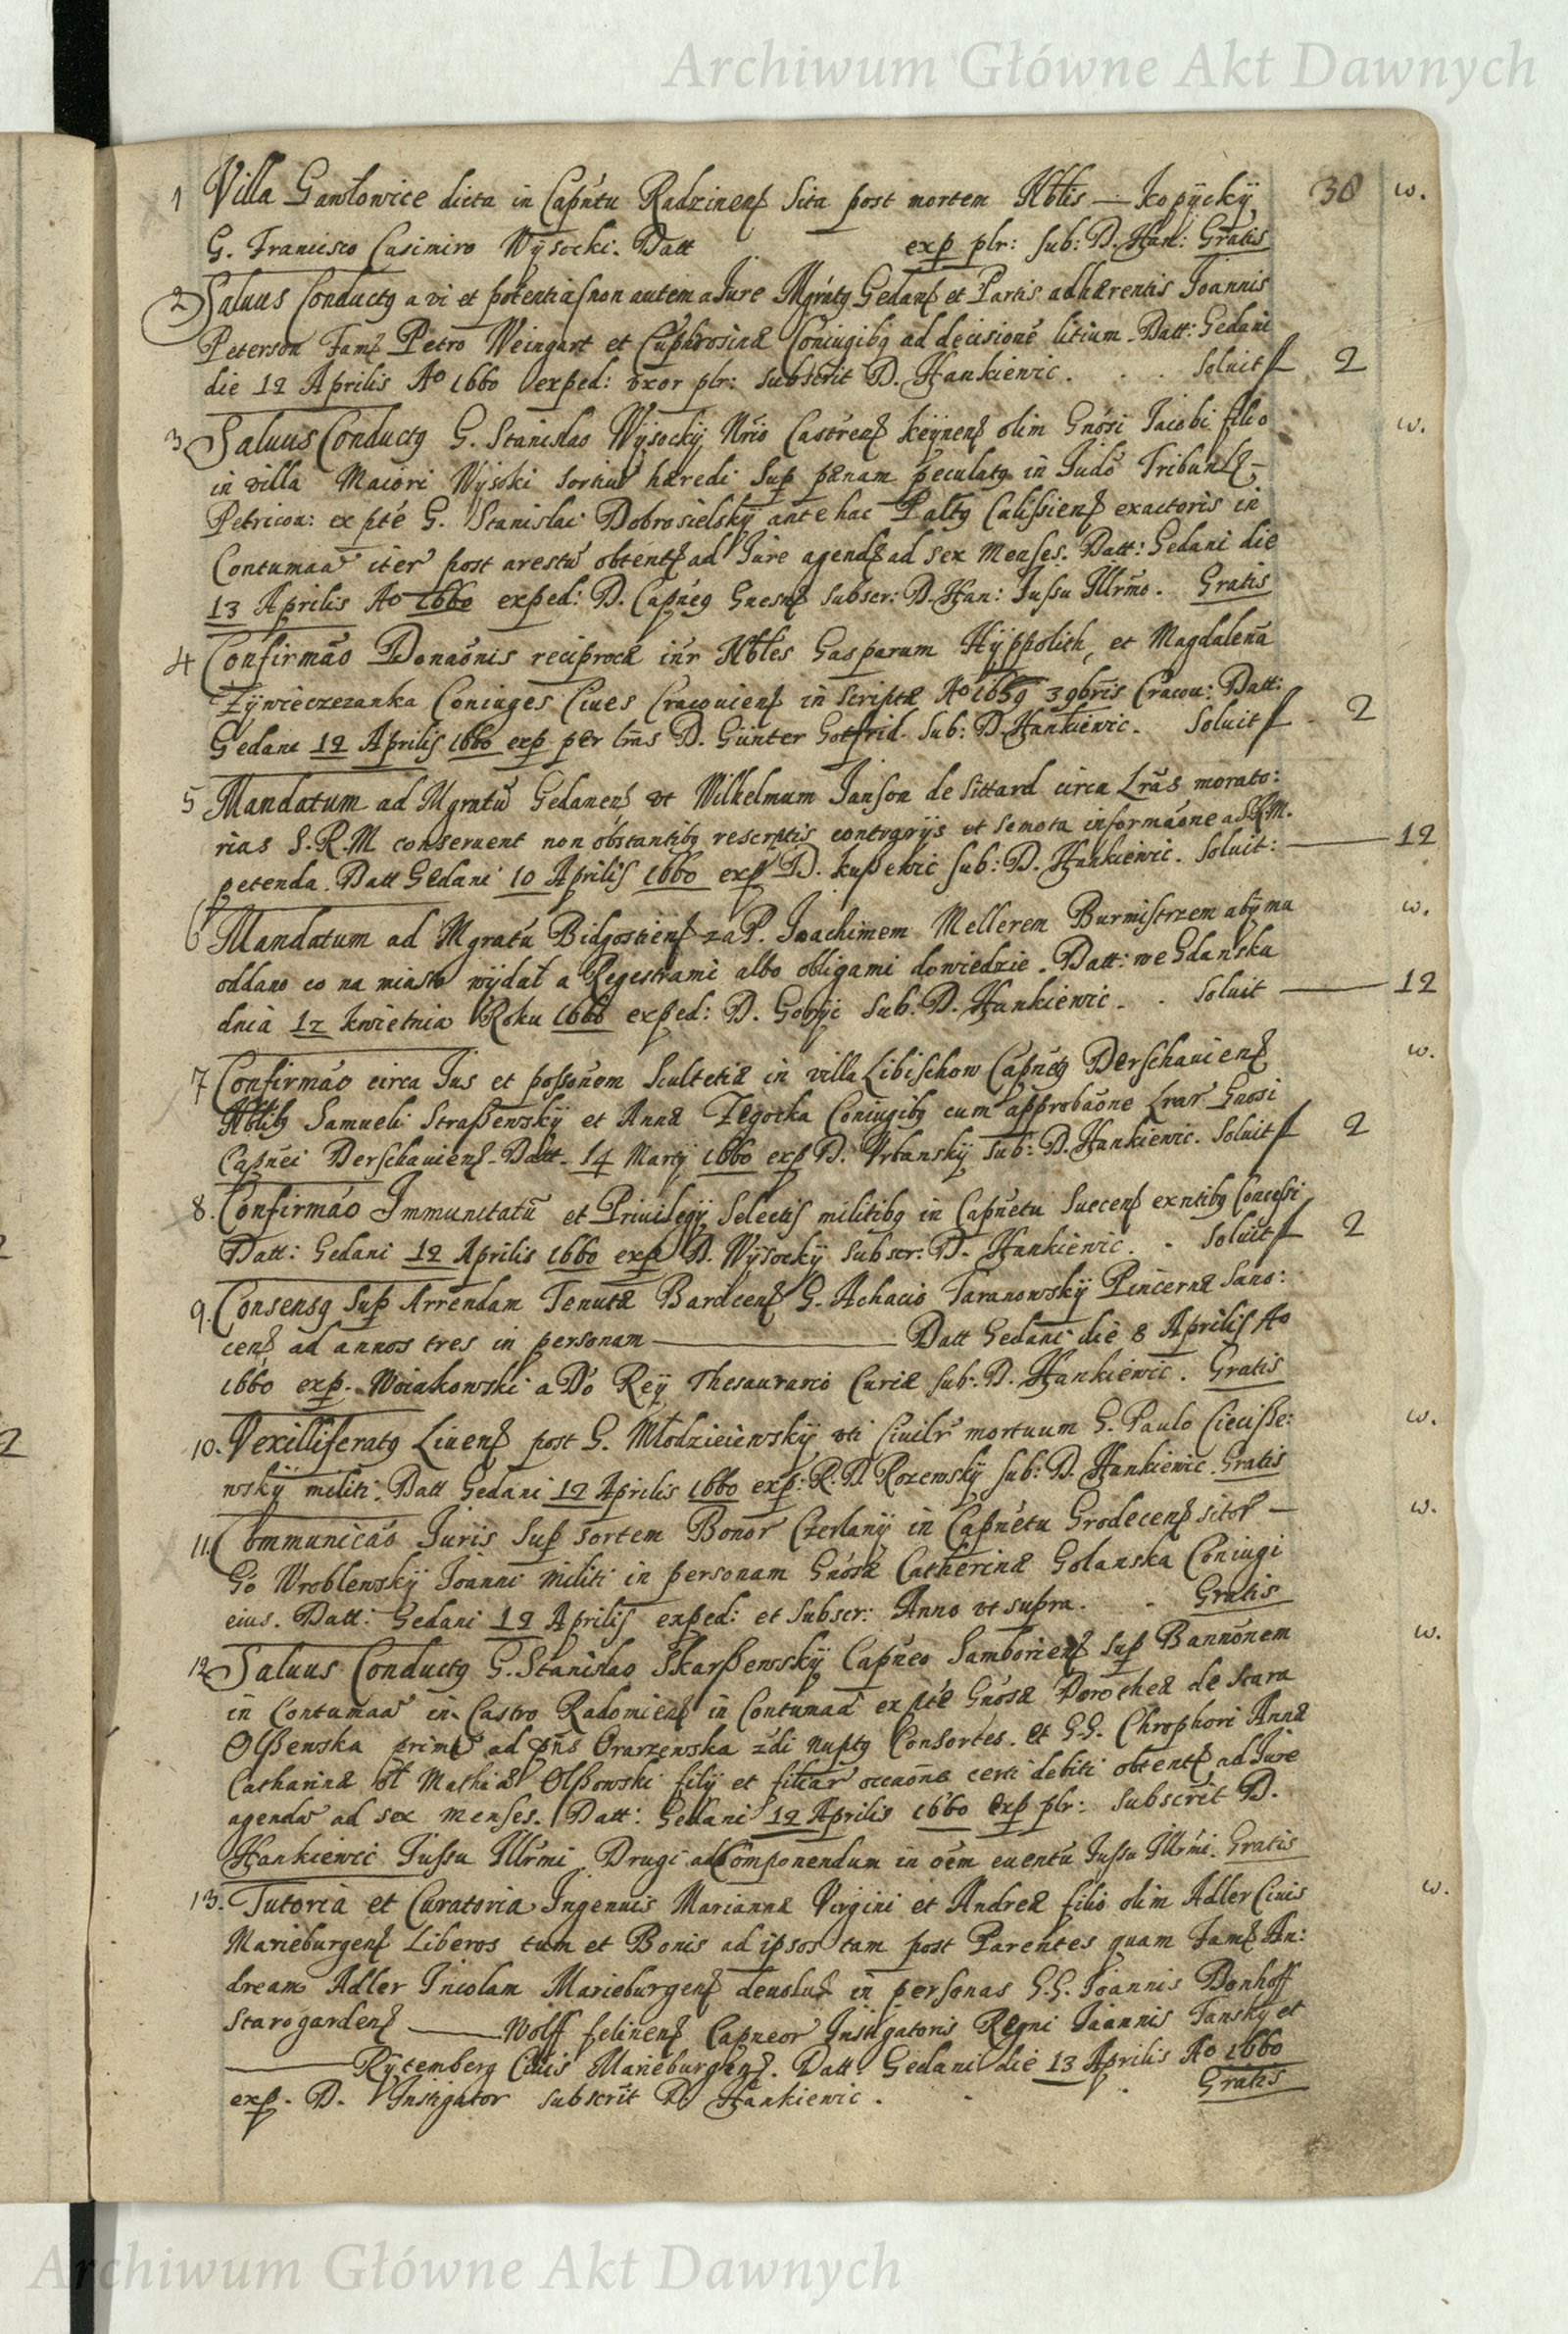 Archiwum Główne Akt Dawnych
30
1 Villa Gawłowice dicta in Capńtu Radzinens sita post mortem Nblis — Kopÿckÿ w.
G. Francisco Casimiro Wÿsocki. Datt exp plr: sub: D. Han: Gratis
2 Saluus Conductq a vi et potentia non autem a Jure Mgrátq Gedans et Partis adhærentis Joannis
Peterson Fams Petro Weingart et Euphrosinæ Coniugibq ad decisionē litium. Datt: Gedani
die 12 Aprilis Ao 1660 exped: vxor plr: subscrit D. Hankiewic. Soluit f 2
3 Saluus Conductq G. Stanislao Wÿsockÿ Nrio Castrens Keÿnens olim Gnósi Jacobi filio w.
in villa Maiori Wÿsoki sortiū hæredi sup pænam peculatq in Judō Tribunls –
Petricou: ex ptè G. Stanislai Dobrosielskÿ ante hac Paltq Calissiens exactoris in
Contumaā iter post arestū obtents ad Jure agends ad sex Menses. Datt: Gedani die
13 Aprilis Ao 1660 exped: D. Capńeq Gnesns subscr: D. Han: Jussu Illrmo. Gratis
4 Confirmāo Donaōnis reciprocæ inr Nbles Gasparum Hÿppolith, et Magdalenā
Zÿwieczezanka Coniuges Ciues Cracouiens in scriptæ Ao 1659 3 9bris Cracou: Datt:
Gedani 12 Aprilis 1660 exp per lrās D. Günter Gotfrid. Sub: D. Hankiewic. Soluit f 2
5 Mandatum ad Mgratū Gedanens vt Wilhelmum Janson de Sittard circa Lrās morato:
rias S.R.M. conseruent non obstantibq rescriptis contrarÿs vt semota informāone a S.R.M.
petenda. Datt Gedani 10 Aprilis 1660 exp D. Kußewic sub: D. Hankiewic. Soluit: — 12
6 Mandatum ad Mgratū Bidgostiens za P. Joachimem Mellerem Burmistrzem abÿ mu w.
oddano co na miasto wÿdał a Regestrami albo obligami dowiedzie. Datt: we Gdanska
dnia 12 kwietnia Roku 1660 exped: D. Gobÿc Sub: D. Hankiewic. Soluit — 12
7 Confirmāo circa Jus et possōnem Scultetiæ in villa Libischow Capńetq Derschauiens w.
Nblibq Samueli Straßewskÿ et Annæ Zegocka Coniugibq cum approbāone Lrar Gnosi
Capńei Derschauiens. Datt. 14 Martÿ 1660 exp D. Vrbanskÿ sub: D. Hankiewic. Soluit f 2
8. Confirmāo Immunitatū et Priuilegÿ Selectis militibq in Capńetu Suecens exntibq Concessi
Datt: Gedani 12 Aprilis 1660 exp D. Wÿsockÿ subscr: D. Hankiewic. Soluit f 2
9. Consensq sup Arrendam Tenutæ Bardcens G. Achacio Taranowskÿ Pincernæ Sano:
cens ad annos tres in personam — Datt Gedani die 8 Aprilis Ao
1660 exp. Woiakowski a Dō Reÿ Thesaurario Curiæ sub: D. Hankiewic. Gratis
10. Vexilliferatq Liuens post G. Młodzieiewskÿ vti Ciuilr mortuum G. Paulo Ciecisze: w.
wskÿ militi. Datt Gedani 12 Aprilis 1660 exp: R.D. Rozewskÿ sub: D. Hankiewic. Gratis
11. Communicāo Juris sup sortem Bonor Czerlanÿ in Capńetu Grodecens sitor — w.
Gō Wroblewskÿ Joanni Militi in personam Gnósæ Catherinæ Golanska Coniugi
eius. Datt: Gedani 12 Aprilis exped: et subscr: Anno vt supra. Gratis
12 Saluus Conductq G. Stanislao Skarßewskÿ Capńeo Samboriens sup Bannōnem w.
in Contumaā in Castro Radomiens in Contumaā ex ptè Gnósæ Dorotheæ de Scara
Olßewska primū ad pns Orarzewska 2di nuptq Consortes. et G.G. Chrophori Annæ
Catharinæ et Mathiæ Olßowski filÿ et filiar occaōne certi debiti obtents ad Jure
agendū ad sex menses. Datt: Gedani 12 Aprilis 1660 exp plr: subscrit D.
Hankiewic Jussu Illrmi Drugi ad Componendum in oēm euentū Jussu Illrmi. Gratis
13. Tutoria et Curatoria Ingenuis Mariannæ Virgini et Andreæ filio olim Adler Ciuis w.
Marieburgens Liberos tum et Bonis ad ipsos tam post Parentes quam Fams An:
dream Adler Incolam Marieburgens deuoluts in personas G.G. Joannis Donhoff
Starogardens — Wolff felinens Capneor Instigatoris Regni Joannis Tanskÿ et
— Rÿtemberg Ciuis Marieburgens. Datt. Gedani die 13 Aprilis Ao 1660
exp. D. Instigator subscrit D. Hankiewic. Gratis
Archiwum Główne Akt Dawnych